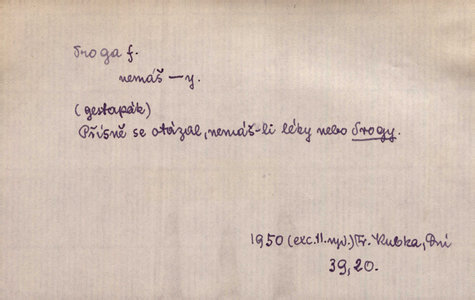 droga f.
nemáš —y.
(gestapák)
Přísně se otázal, nemáš-li léky nebo drogy.
1950 (exc. 11. vyd.) Fr. Kubka, Dni
39, 20.